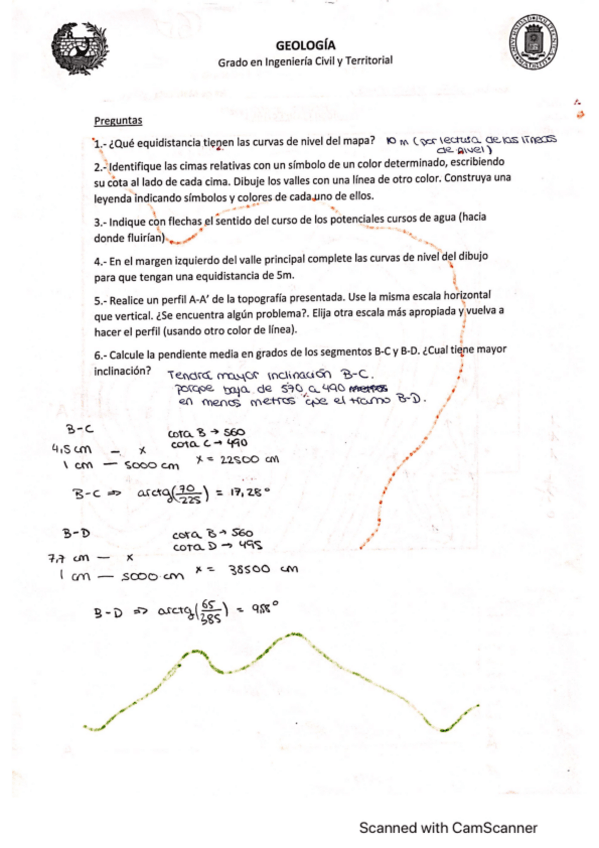 GEOLOGÍA
Grado en Ingeniería Civil y Territorial
Preguntas
1.- ¿Qué equidistancia tienen las curvas de nivel del mapa? 10 m (por lectura de las líneas
de nivel)
2.- Identifique las cimas relativas con un símbolo de un color determinado, escribiendo
su cota al lado de cada cima. Dibuje los valles con una línea de otro color. Construya una
leyenda indicando símbolos y colores de cada uno de ellos.
3.- Indique con flechas el sentido del curso de los potenciales cursos de agua (hacia
donde fluirían)
4.- En el margen izquierdo del valle principal complete las curvas de nivel del dibujo
para que tengan una equidistancia de 5m.
5.- Realice un perfil A-A' de la topografía presentada. Use la misma escala horizontal
que vertical. ¿Se encuentra algún problema?. Elija otra escala más apropiada y vuelva a
hacer el perfil (usando otro color de línea).
6.- Calcule la pendiente media en grados de los segmentos B-C y B-D. ¿Cual tiene mayor
inclinación? Tendrá mayor inclinación B-C.
porque baja de 570 a 490 metros
en menos metros que el tramo B-D.
B-C cota B → 560
4,5 cm — x cota C → 490
1 cm — 5000 cm x = 22500 cm
B-C ⇒ arctg(70/225) = 17,28°
B-D cota B → 560
7,7 cm — x cota D → 495
1 cm — 5000 cm x = 38500 cm
B-D ⇒ arctg(65/385) = 9,58°
Scanned with CamScanner